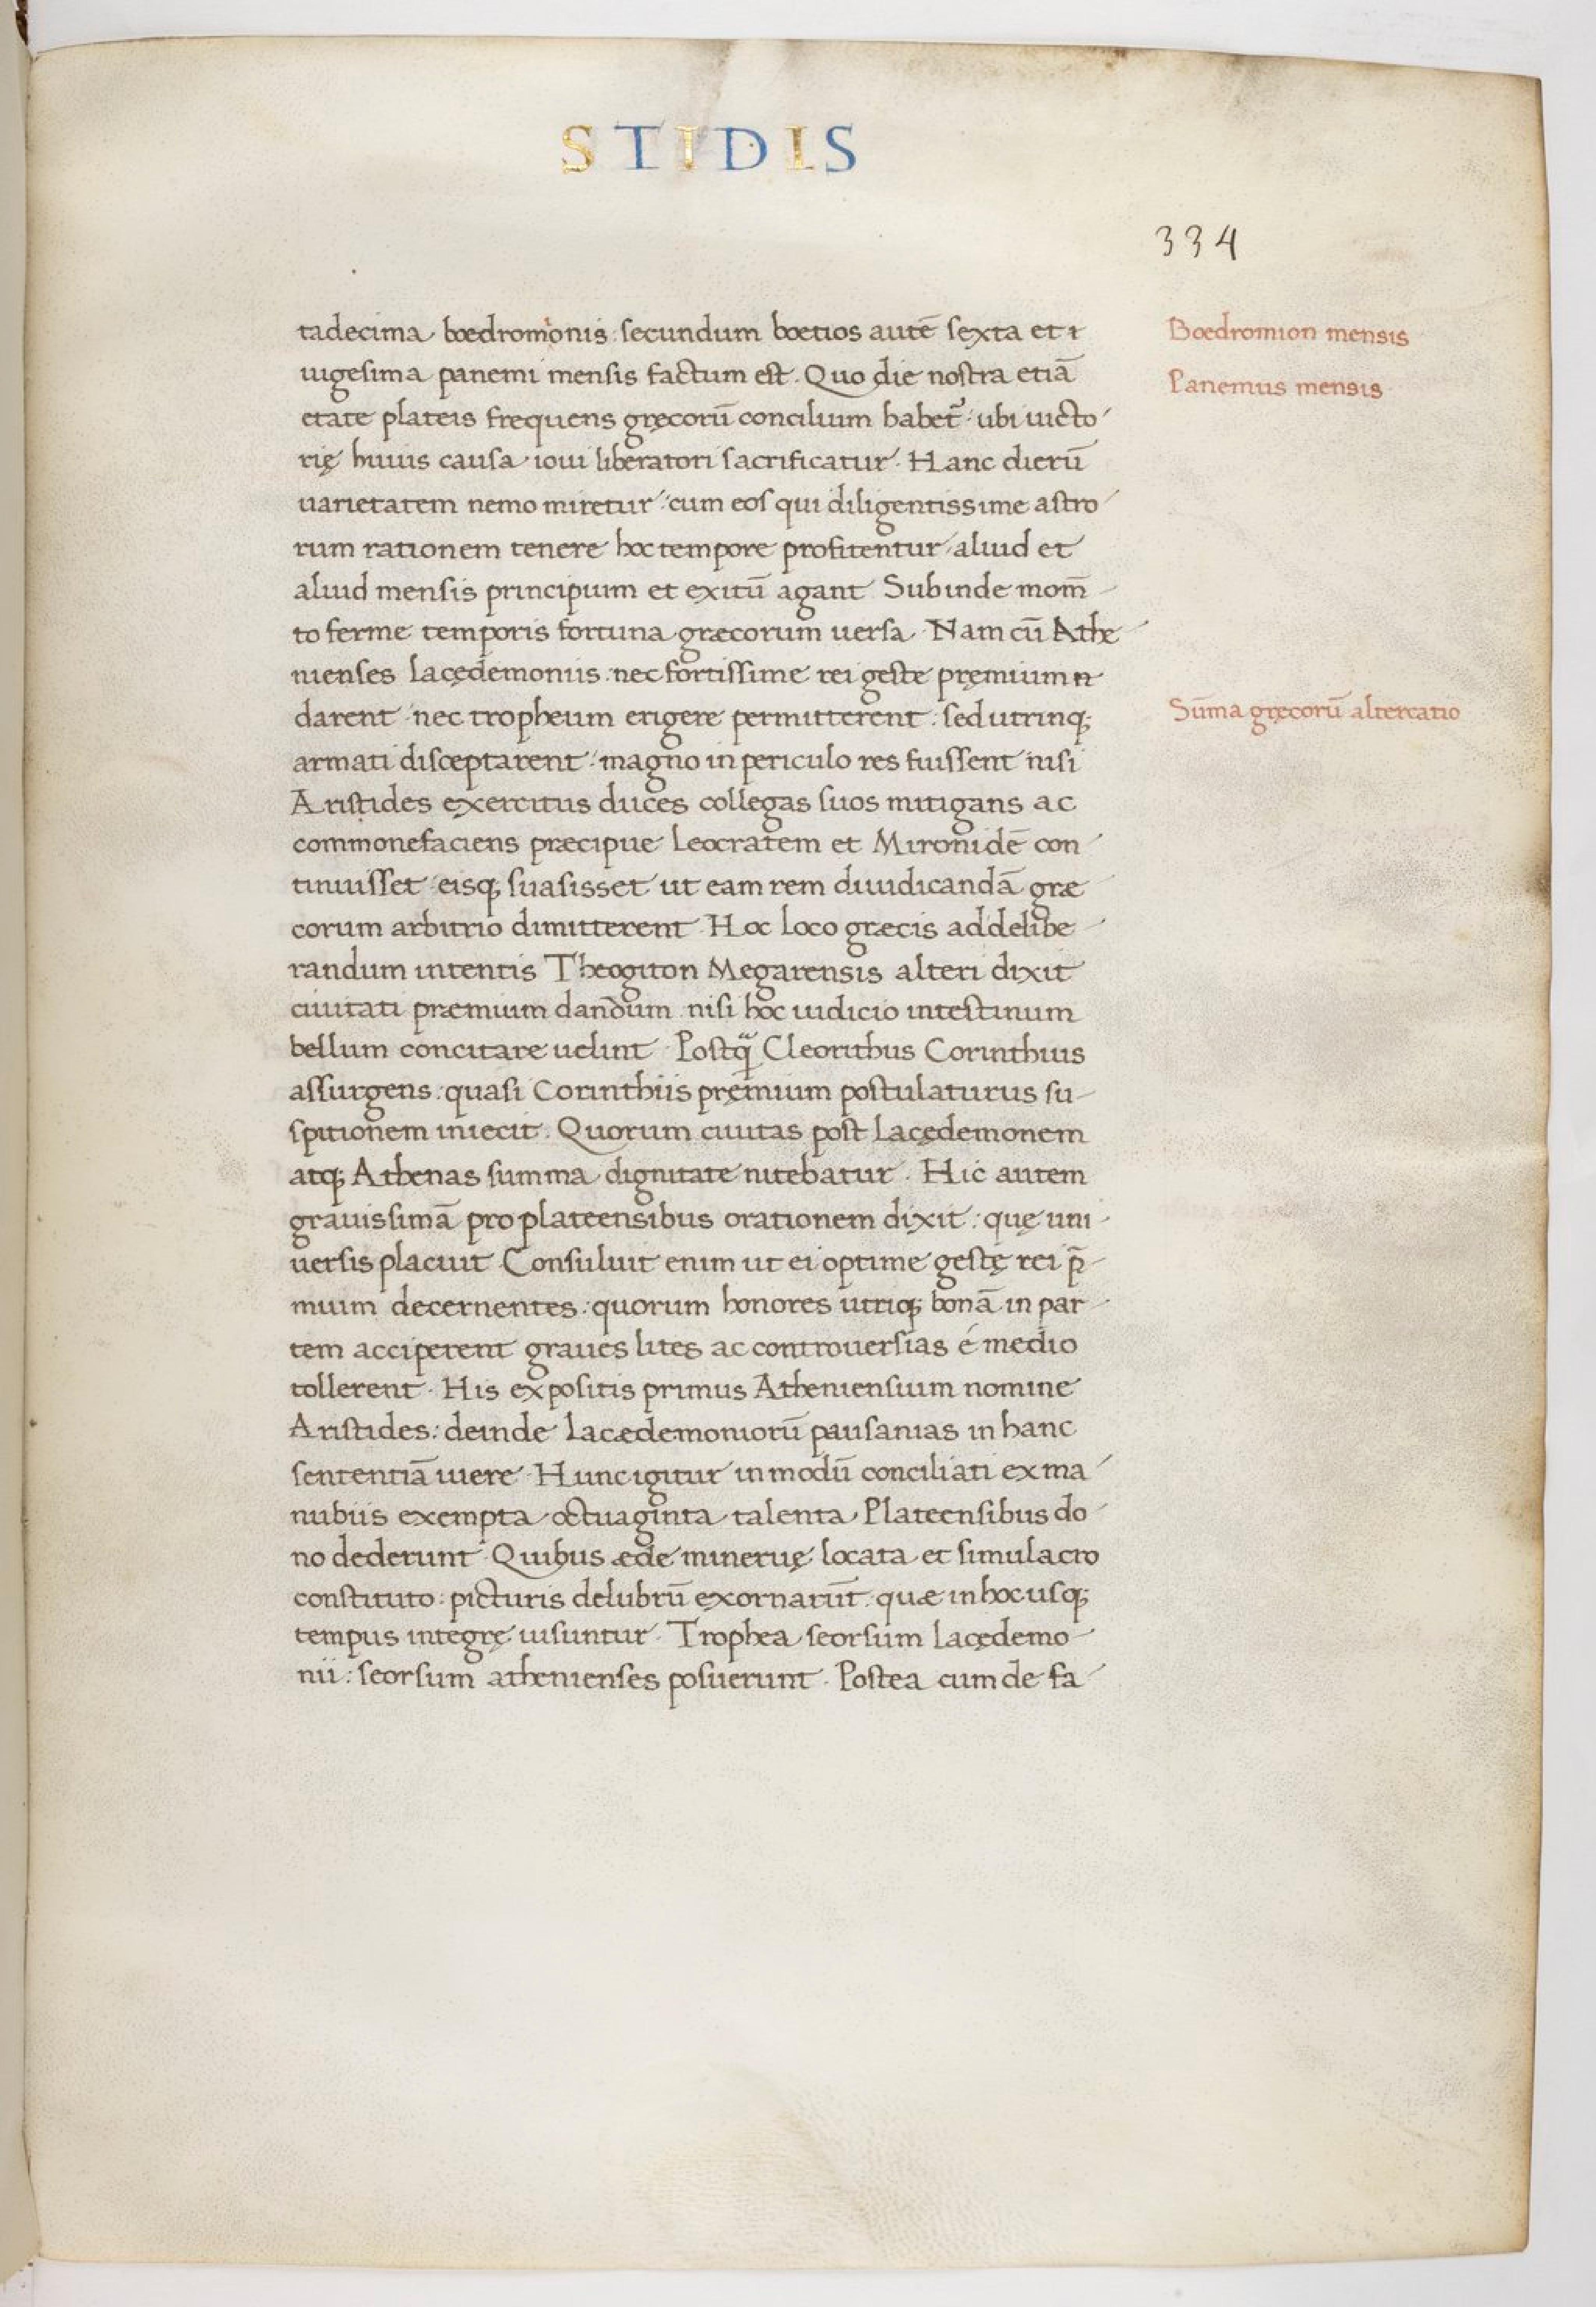 STIDIS
334
tadecima boedromionis: secundum boetios autē sexta et
uigesima panemi mensis factum est. Quo die nostra etiā
etate plateis frequens gręcorū concilium habet᷑: ubi uicto
rię huius causa ioui liberatori sacrificatur. Hanc dierū
uarietatem nemo miretur: cum eos qui diligentissime astro
rum rationem tenere hoc tempore profitentur aliud et
aliud mensis principium et exitū agant. Subinde mom̄
to ferme temporis fortuna græcorum uersa. Nam cū Athe
nienses lacędemoniis: nec fortissime rei geste pręmium
darent: nec tropheum erigere permitterent: sed utrinq;
armati disceptarent: magno in periculo res fuissent nisi
Aristides exercitus duces collegas suos mitigans ac
commonefaciens præcipue Leocratem et Mironidē con
tinuisset: eisq; suasisset ut eam rem diiudicandā græ
corum arbitrio dimitterent. Hoc loco græcis ad delibe
randum intentis Theogiton Megarensis alteri dixit
ciuitati præmium dandum nisi hoc iudicio intestinum
bellum concitare uelint. Postq̄ Cleorithus Corinthius
assurgens: quasi Corinthiis pręmium postulaturus su-
spitionem iniecit. Quorum ciuitas post Lacędemonem
atq; Athenas summa dignitate nitebatur. Hic autem
grauissimā pro plateensibus orationem dixit: quę uni
uersis placuit. Consuluit enim ut ei optime gestę rei p̄
mium decernentes: quorum honores utriq; bonā in par
tem acciperent graues lites ac controuersias é medio
tollerent. His expositis primus Atheniensium nomine
Aristides: deinde Lacædemoniorū pausanias in hanc
sententiā iuere. Hunc igitur in modū conciliati ex ma
nubiis exempta octuaginta talenta Plateensibus do
no dederunt. Quibus æde mineruę locata et simulacro
constituto: picturis delubrū exornarūt: quæ in hoc usq;
tempus integrę uisuntur. Trophea seorsum lacędemo
nii: seorsum athenienses posuerunt. Postea cum de fa
Boedromion mensis
Panemus mensis
Sūma gręcorū altercatio